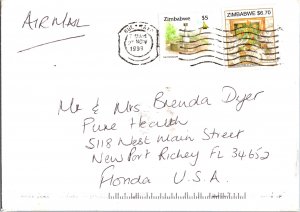 AIRMAIL
Zimbabwe $5
ZIMBABWE $6.70
NOV
1999
Mr & Mrs Brenda Dyer
Pure Health
5118 West Main Street
New Port Richey FL 34652
Florida U.S.A.